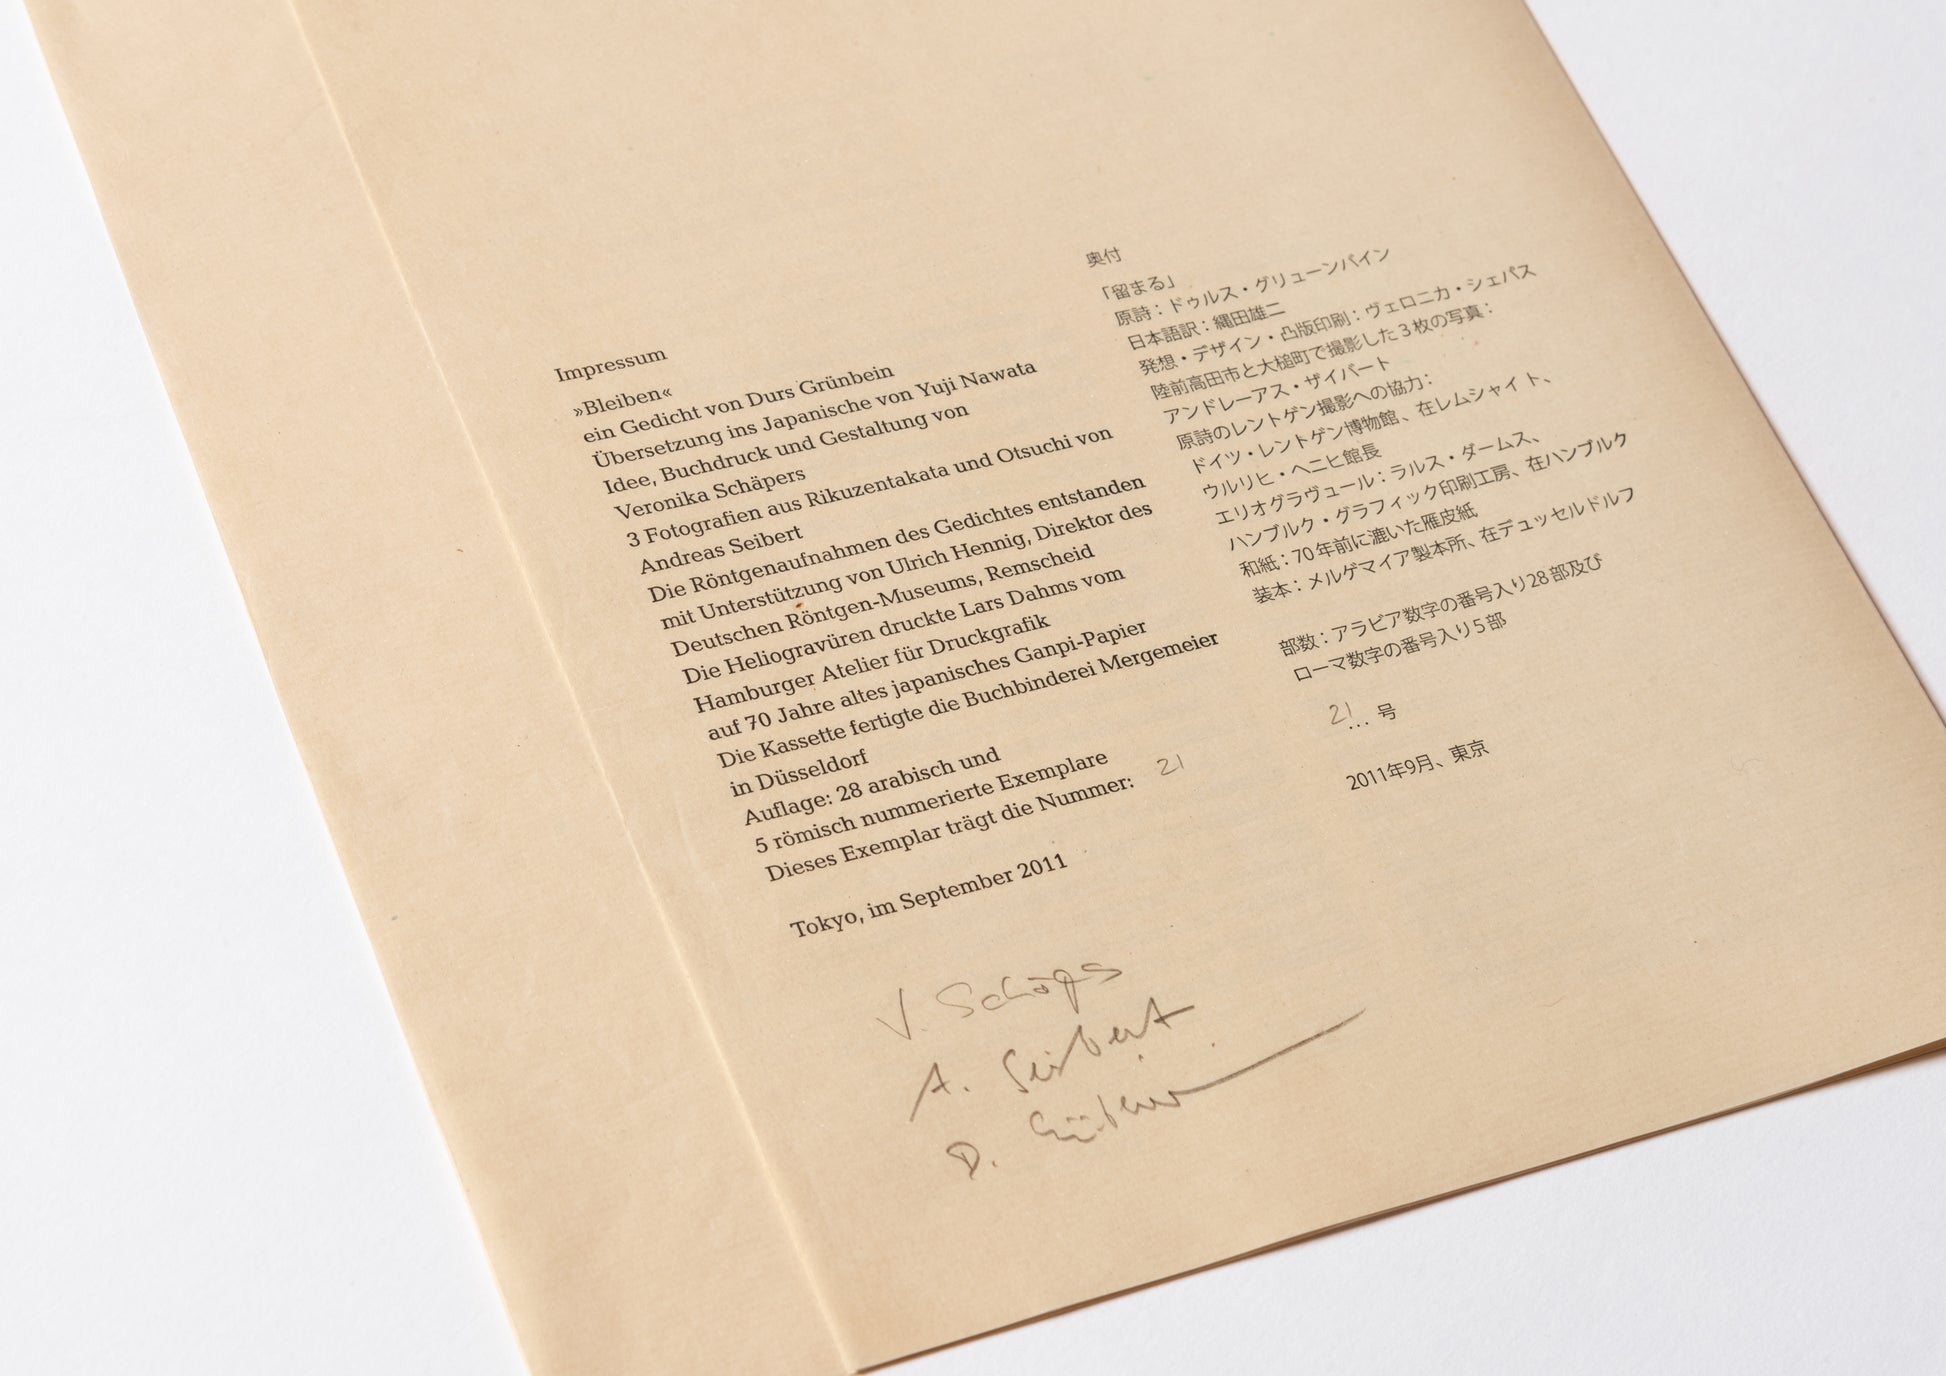 Impressum
»Bleiben«
ein Gedicht von Durs Grünbein
Übersetzung ins Japanische von Yuji Nawata
Idee, Buchdruck und Gestaltung von
Veronika Schäpers
3 Fotografien aus Rikuzentakata und Otsuchi von
Andreas Seibert
Die Röntgenaufnahmen des Gedichtes entstanden
mit Unterstützung von Ulrich Hennig, Direktor des
Deutschen Röntgen-Museums, Remscheid
Die Heliogravüren druckte Lars Dahms vom
Hamburger Atelier für Druckgrafik
auf 70 Jahre altes japanisches Ganpi-Papier
Die Kassette fertigte die Buchbinderei Mergemeier
in Düsseldorf
Auflage: 28 arabisch und
5 römisch nummerierte Exemplare
Dieses Exemplar trägt die Nummer: 21
Tokyo, im September 2011
V. Schäps
A. Seibert
D. Grünbein
奥付
「留まる」
原詩：ドゥルス・グリューンバイン
日本語訳：縄田雄二
発想・デザイン・凸版印刷：ヴェロニカ・シェパス
陸前高田市と大槌町で撮影した3枚の写真：
アンドレーアス・ザイバート
原詩のレントゲン撮影への協力：
ドイツ・レントゲン博物館、在レムシャイト、
ウルリヒ・ヘニヒ館長
エリオグラヴュール：ラルス・ダームス、
ハンブルク・グラフィック印刷工房、在ハンブルク
和紙：70年前に漉いた雁皮紙
装本：メルゲマイア製本所、在デュッセルドルフ
部数：アラビア数字の番号入り28部及び
ローマ数字の番号入り5部
21... 号
2011年9月、東京